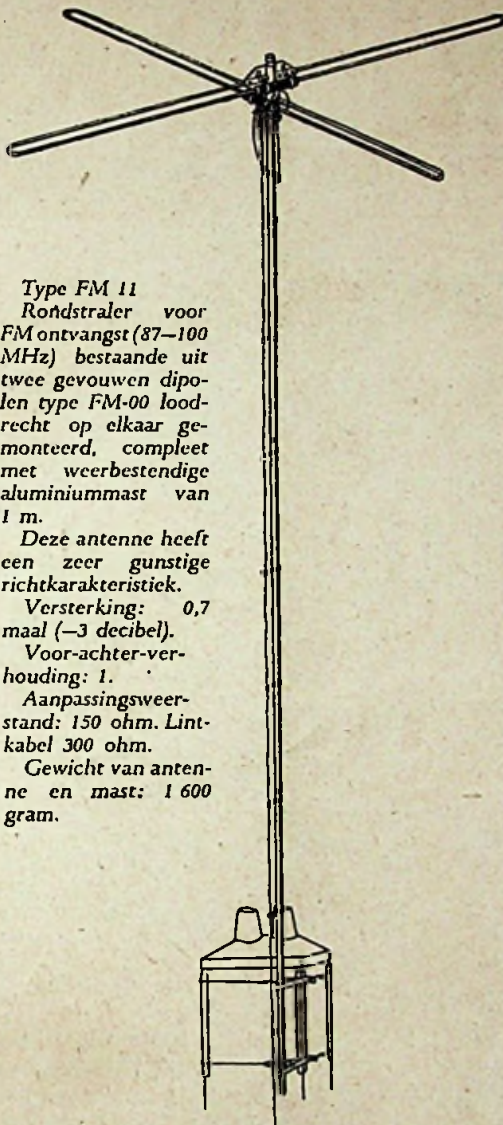 Type FM 11
Rondstraler voor
FM ontvangst (87—100
MHz) bestaande uit
twee gevouwen dipo-
len type FM-00 lood-
recht op elkaar ge-
monteerd, compleet
met weerbestendige
aluminiummast van
1 m.
Deze antenne heeft
een zeer gunstige
richtkarakteristiek.
Versterking: 0,7
maal (—3 decibel).
Voor-achter-ver-
houding: 1.
Aanpassingsweer-
stand: 150 ohm. Lint-
kabel 300 ohm.
Gewicht van anten-
ne en mast: 1 600
gram.